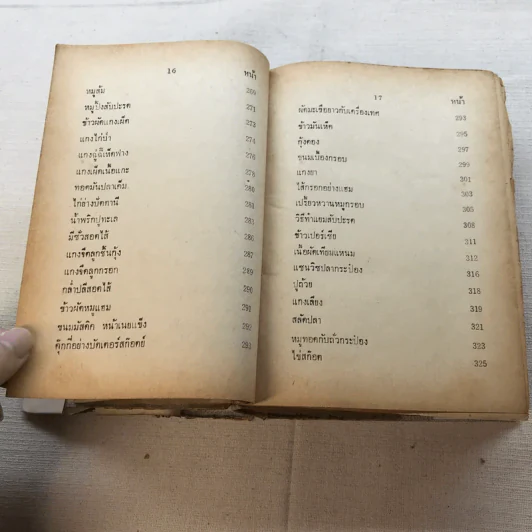 16 หน้า
หมูส้ม 269
หมูปิ้งสับปะรด 271
ข้าวผัดแกงเผ็ด 273
แกงไก่ป่า 274
แกงฉู่ฉี่เห็ดฟาง 276
แกงเผ็ดเนื้อแกะ 278
ทอดมันปลาเค็ม 280
ไก่ย่างบัคคานี 282
น้ำพริกปูทะเล 285
มะชั่วสอดไส้ 286
แกงจืดลูกชิ้นกุ้ง 287
แกงจืดลูกรอก 289
กล่ำปลีสอดไส้ 290
ข้าวผัดหมูแฮม 291
ขนมมัสคิค หน้าเนยแข็ง 292
คุ๊กกี่อย่างบัคเตอร์สก๊อตย์ 293
17 หน้า
ผัดมะเขือยาวกับเครื่องเทศ 293
ข้าวมันเห็ด 295
กุ้งดอง 297
ขนมเบื้องกรอบ 299
แกงยา 301
ไส้กรอกอย่างแฮม 303
เปรี้ยวหวานหมูกรอบ 305
วิธีทำแยมสับปะรด 308
ข้าวเปอร์เซีย 311
เนื้อผัดเทียมแหนม 312
แซนวิชปลากระป๋อง 316
ปูถ้วย 318
แกงเลียง 319
สลัดปลา 321
หมูทอดกับถั่วกระป๋อง 323
ไข่สก๊อต 325